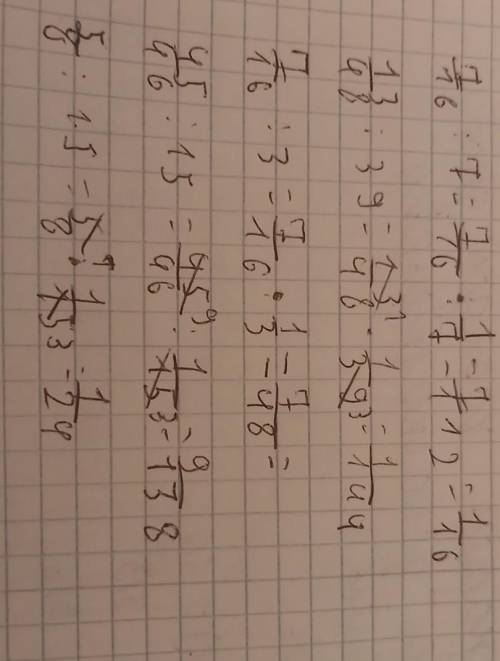 7/16 : 7 = 7/16 · 1/7 = 7/112 = 1/16
13/48 : 39 = 13/48 · 1/39 3 = 1/144
7/16 : 3 = 7/16 · 1/3 = 7/48 =
45/46 : 15 = 45/46 9 · 1/15 3 = 9/138
5/8 : 15 = 5/8 1 · 1/15 3 = 1/24